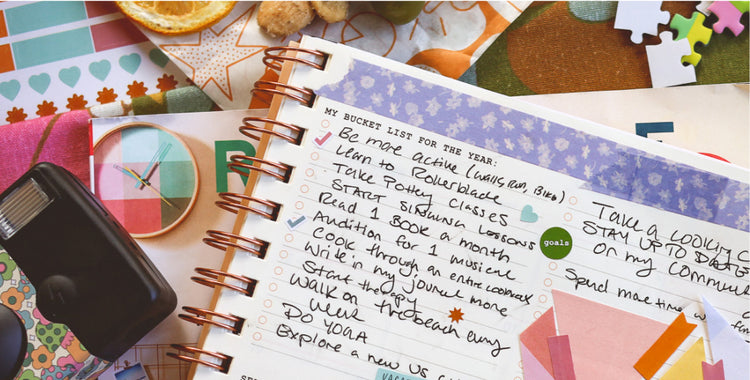 R
MY BUCKET LIST FOR THE YEAR:
Be more active (walk, Run, Bike)
Learn to Rollerblade
Take Pottery Classes
START SINGING LESSONS
Read 1 BOOK a month
Audition for 1 musical
COOK through an entire cookbook
Write in my journal more
Start therapy
WALK on the beach every
week
DO YOGA
Explore a new US
goals
Take a
STAY UP TO
on my
Spend more time